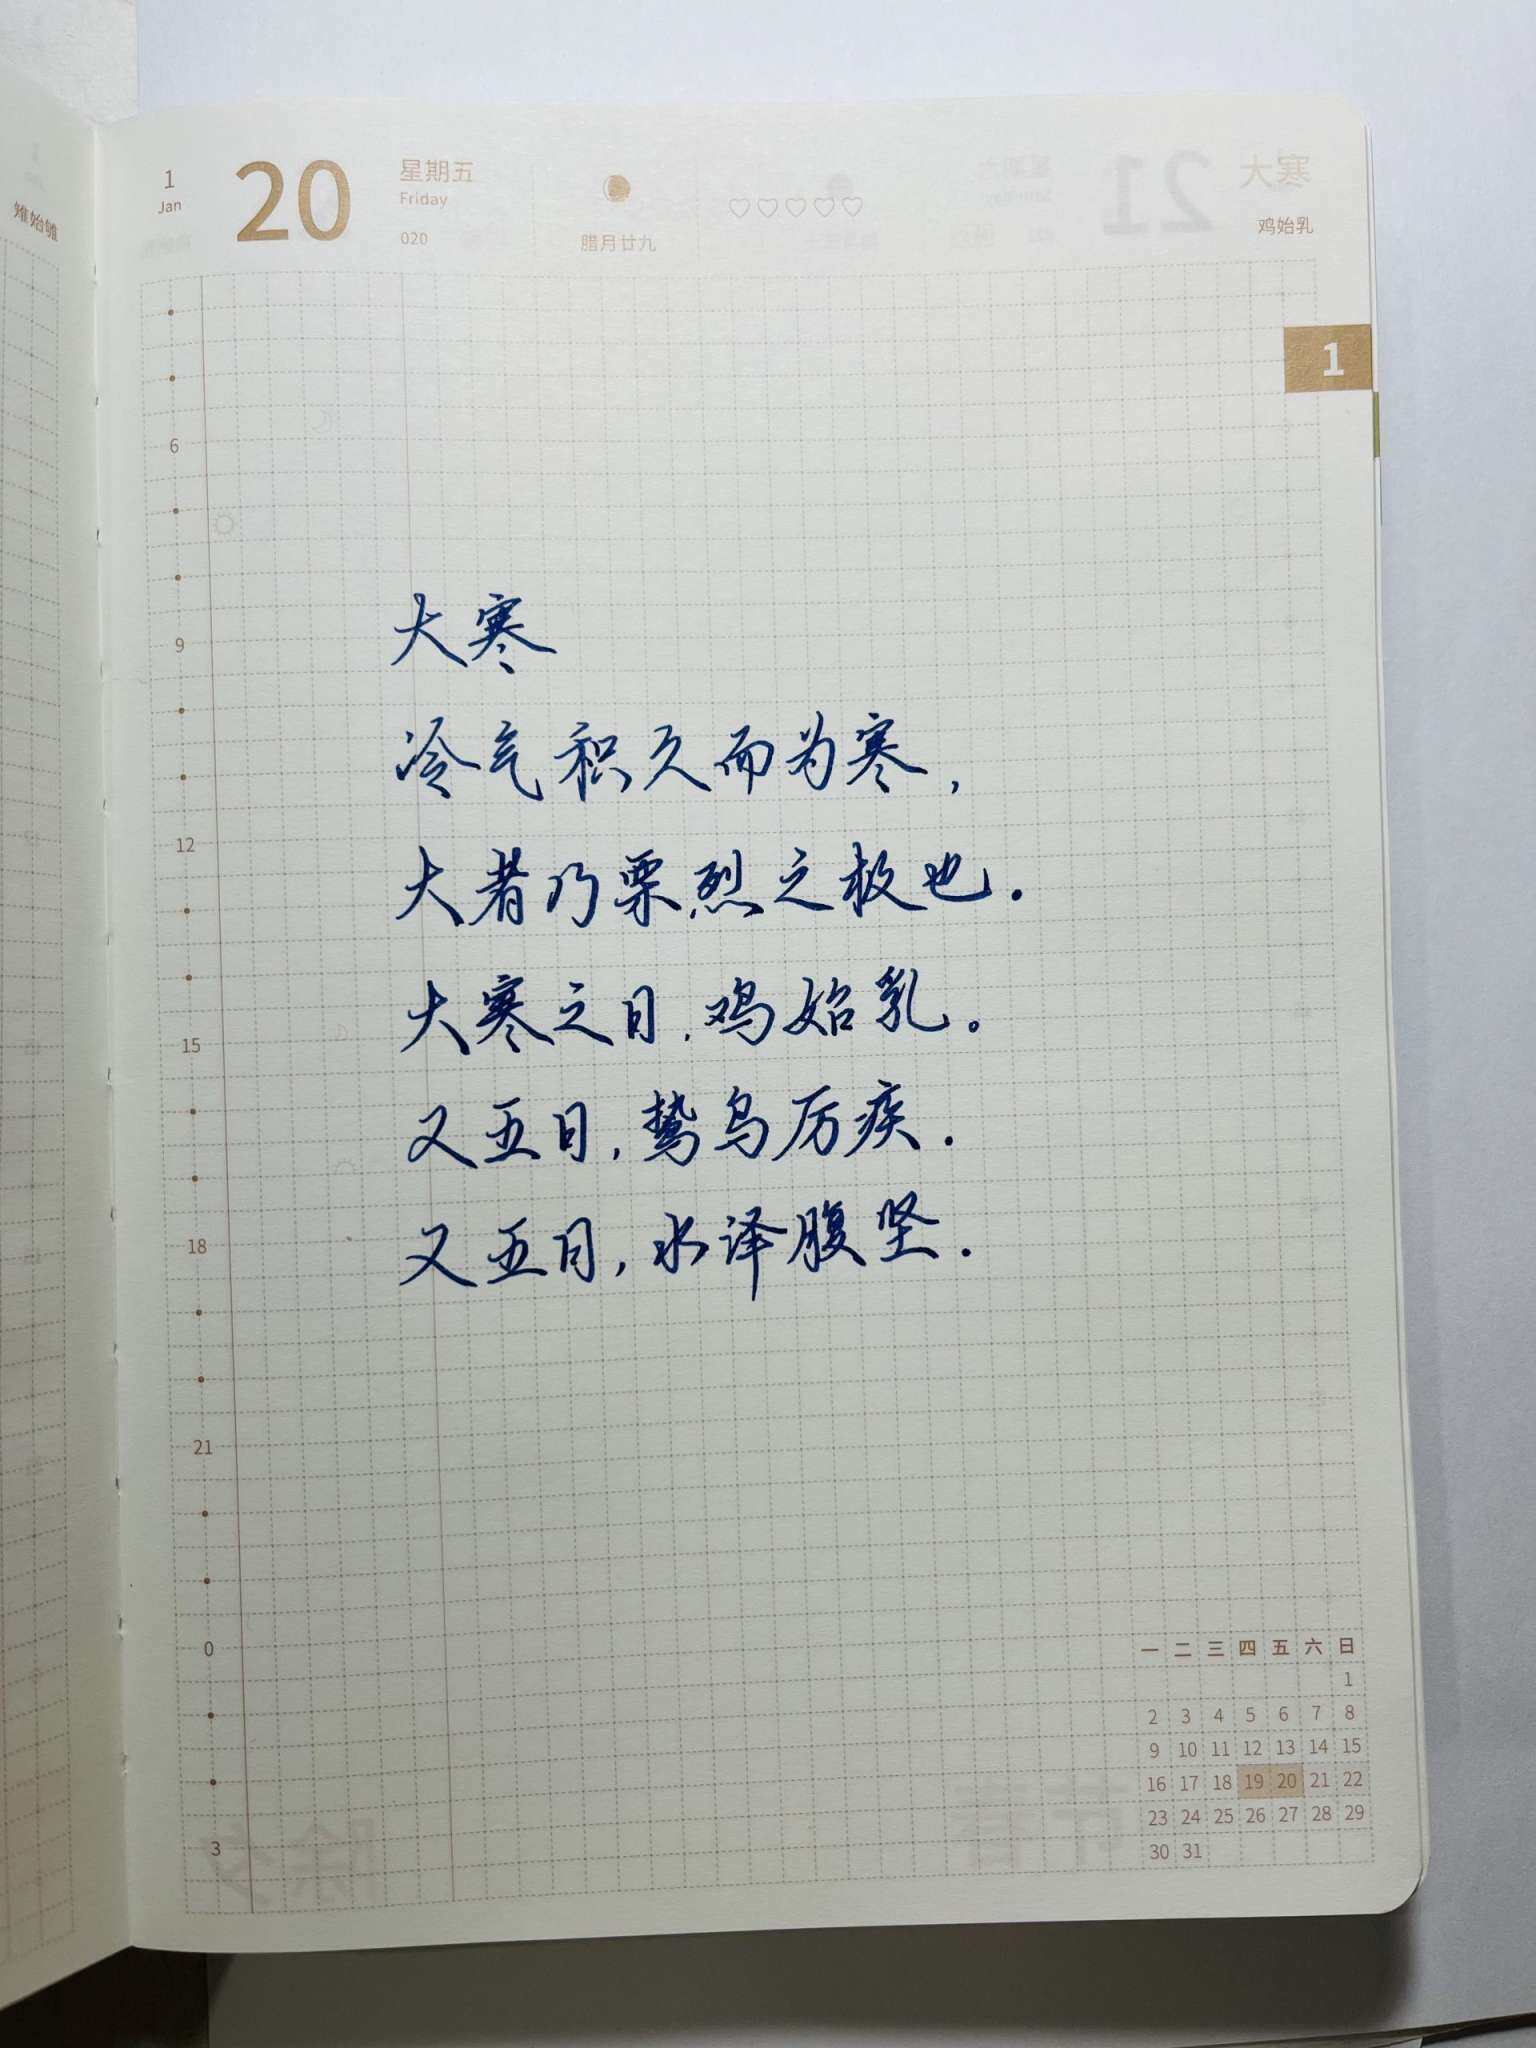 雉始雊
1
Jan
20
星期五
Friday
020
腊月廿九
大寒
鸡始乳
1
6
9
12
15
18
21
0
3
大寒
冷气积久而为寒,
大者乃栗烈之极也.
大寒之日,鸡始乳。
又五日,鸷鸟厉疾.
又五日,水泽腹坚.
一 二 三 四 五 六 日
1
2 3 4 5 6 7 8
9 10 11 12 13 14 15
16 17 18 19 20 21 22
23 24 25 26 27 28 29
30 31